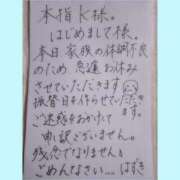 本指K様。
はじめまして様。
本日家族の体調不良
のため急遽お休み
させていただきます
振替日を作らせていただき
ます。
ご迷惑をおかけして
申し訳ございません。
残念でなりません。
ごめんなさい… はずき